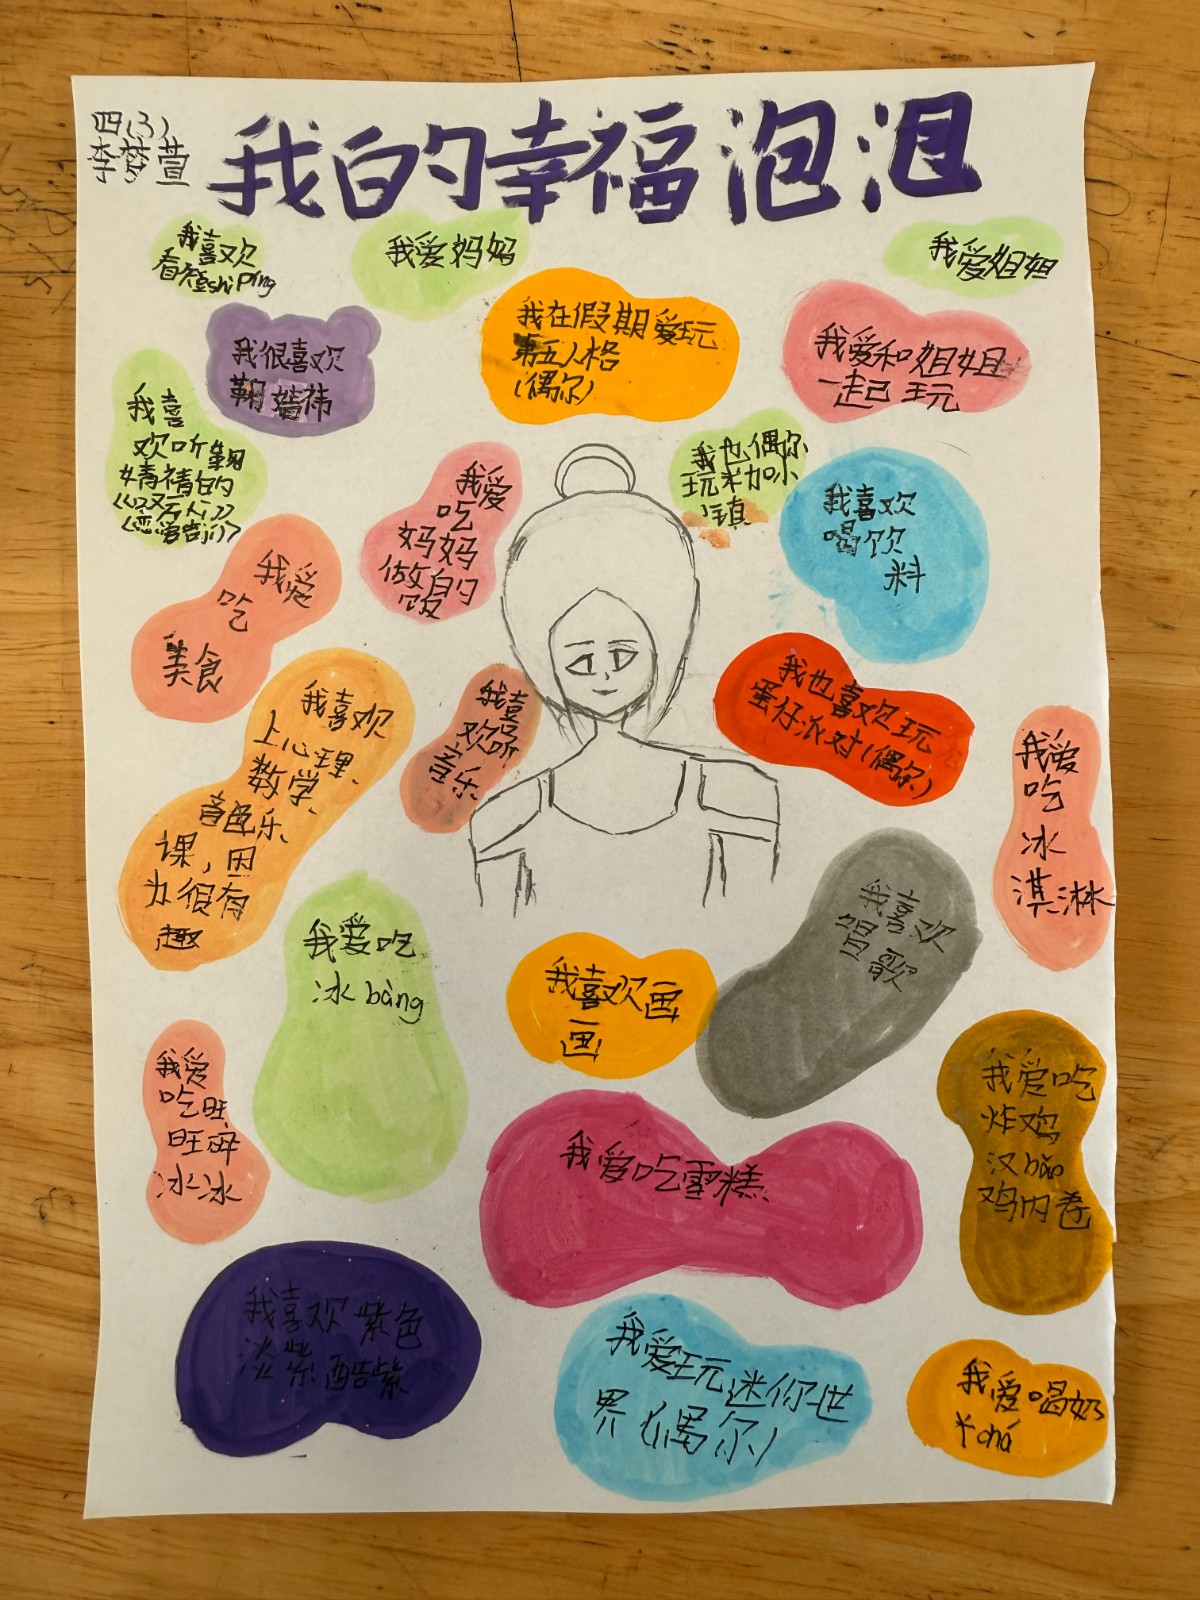 四(3)
李梦萱
我的幸福泡泡
我喜欢
看短shì pín
我爱妈妈
我爱姐姐
我很喜欢
鞠婧祎
我在假期爱玩
第五人格
(偶尔)
我爱和姐姐
一起玩
我喜
欢听鞠
婧祎的
《叹云兮》
《恋爱告急》
我爱
吃
妈妈
做的
饭
我也偶尔
玩米加小
镇
我喜欢
喝饮
料
我爱
吃
美食
我喜
欢听
音乐
我也喜欢玩
蛋仔派对(偶尔)
我喜欢
上心理、
数学、
音乐、
课,因
为很有
趣
我爱
吃
冰
淇淋
我爱吃
冰bàng
我喜欢
唱歌
我喜欢画
画
我爱
吃旺
旺碎
冰冰
我爱吃雪糕
我爱吃
炸鸡
汉bǎo
鸡肉卷
我喜欢紫色
淡紫酷紫
我爱玩迷你世
界(偶尔)
我爱喝奶
chá